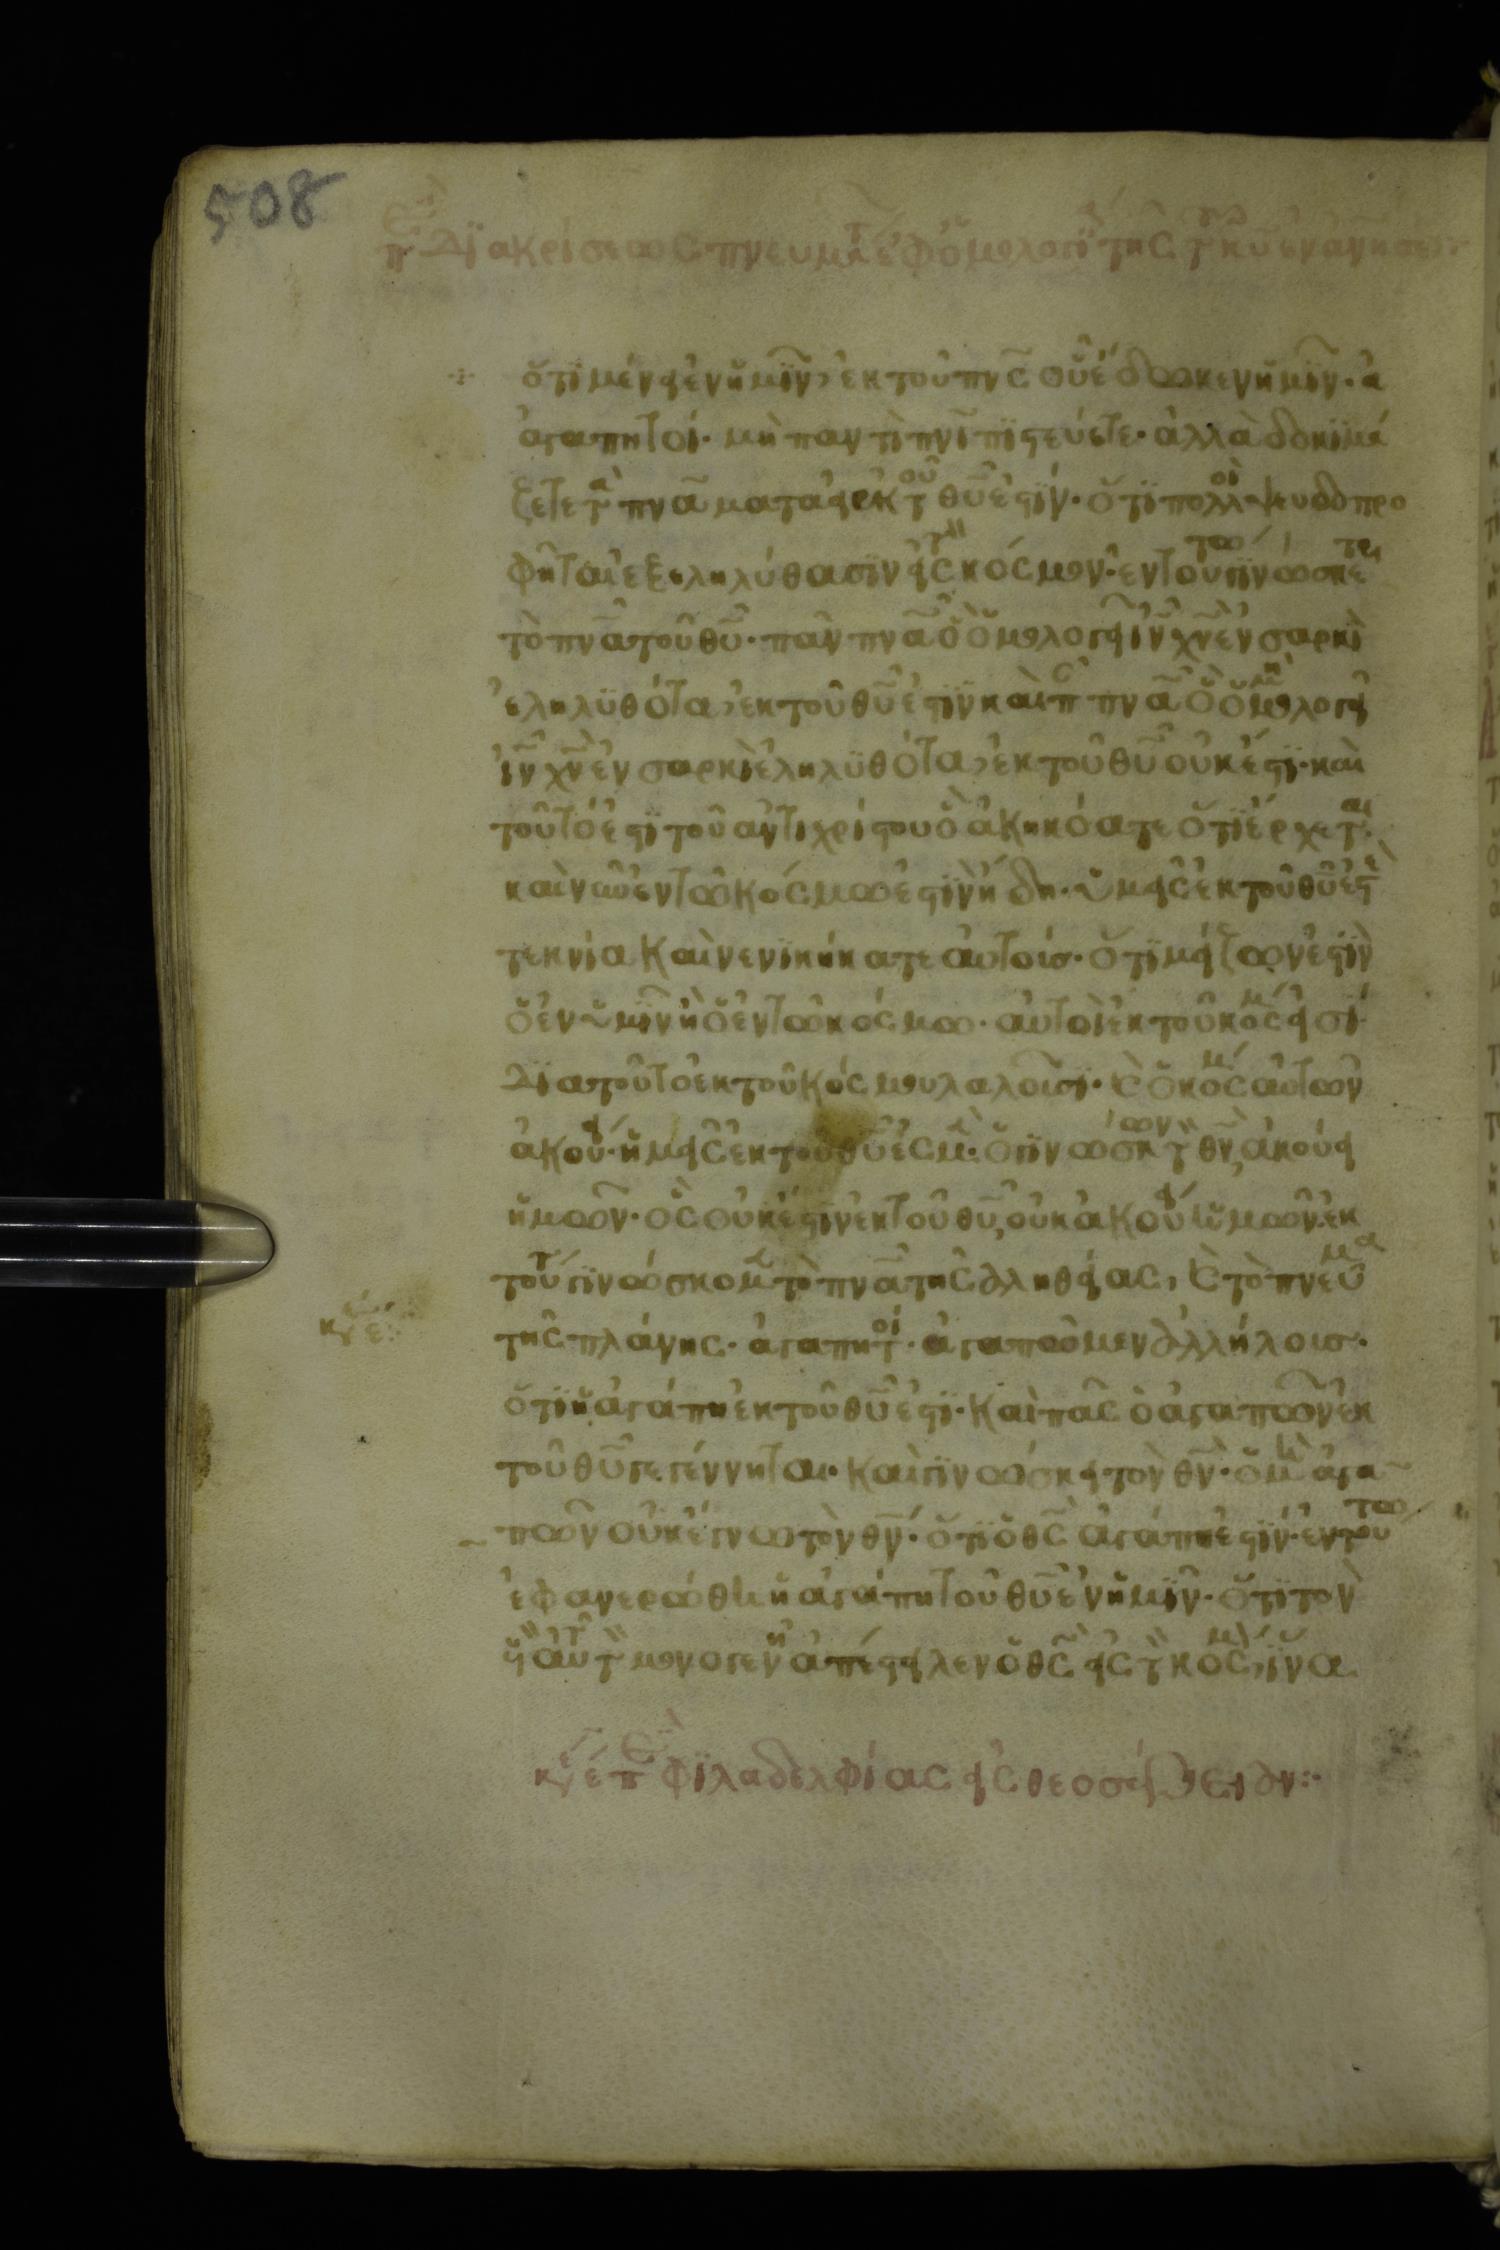 508
Διακρίσεως πνευμάτ ἐφ ὁμολογί της τ κυ ἐνανησε
ὅτι μένει ἐν ἡμῖν, ἐκ τοῦ πνς οὗ ἔδωκεν ἡμῖν· ἀ
ἀγαπητοί· μὴ παντὶ πνι πιστεύετε· ἀλλὰ δοκιμά
ζετε τὰ πνάματα εἰ ἐκ τοῦ θυ ἐστίν· ὅτι πολλοὶ ψευδοπρο
φῆται ἐξεληλύθασιν εἰς τὸν κόσμον· ἐν τούτω γινώσκετε
τὸ πνα τοῦ θυ· πᾶν πνα ὃ ὁμολογεῖ ιν χν ἐν σαρκὶ
ἐληλυθότα, ἐκ τοῦ θυ ἐστὶν καὶ π πνα ὃ ὁμὴ ολογεῖ
ιν χν ἐν σαρκὶ ἐληλυθότα, ἐκ τοῦ θυ οὐκ ἔστι· καὶ
τοῦτό ἐστι τοῦ ἀντιχρίστου ὃ ἀκηκόατε ὅτι ἔρχεται·
καὶ νῦν ἐν τῶ κόσμω ἐστὶν ἤδη· ὑμεῖς ἐκ τοῦ θυ ἐστὲ
τεκνία καὶ νενικήκατε αὐτοίσ· ὅτι μείζων ἐστὶν
ὁ ἐν ὑμῖν ἢ ὁ ἐν τῶ κόσμω· αὐτοὶ ἐκ τοῦ κόσμ εἰσί·
Διατοῦτο ἐκ τοῦ κόσμου λαλοῦσι· καὶ ὁ κόσμ αὐτῶν
ἀκούει· ἡμεῖς ἐκ τοῦ θυ ἐσμὲ· ὁ γινώσκων τὸν θν, ἀκούει
ἡμῶν· ὃς οὐκ ἔστιν ἐκ τοῦ θυ, οὐκ ἀκούει ἡμῶν. ἐκ
τούτ γινώσκομε τὸ πνα τῆς ἀληθείας, καὶ τὸ πνεῦμα
τῆς πλάνης· ἀγαπητοί· ἀγαπῶμεν ἀλλήλοισ·
ὅτι ἡ ἀγάπη ἐκ τοῦ θυ ἐστι· καὶ πᾶς ὁ ἀγαπῶν ἐκ
τοῦ θυ γεγέννηται· καὶ γινώσκει τὸν θν· ὁ μὴ ἀγα
πῶν οὐκ ἔγνω τὸν θν· ὅτι ὁ θς ἀγάπη ἐστίν· ἐν τούτω
ἐφανερώθη ἡ ἀγάπη τοῦ θυ ἐν ἡμῖν· ὅτι τὸν
υν αὐτ τὸν μονογενῆ ἀπέσταλκεν ὁ θς εἰς τὸν κόσμ, ἵνα
φιλαδελφίας εἰς θεοσέ